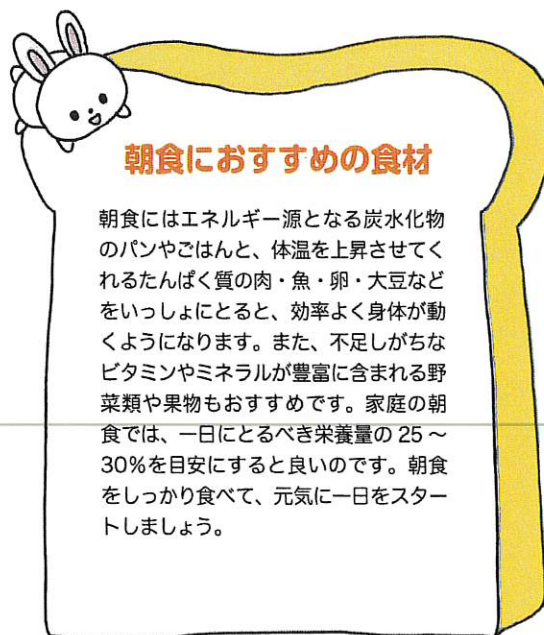 朝食におすすめの食材
朝食にはエネルギー源となる炭水化物
のパンやごはんと、体温を上昇させてく
れるたんぱく質の肉・魚・卵・大豆など
をいっしょにとると、効率よく身体が動
くようになります。また、不足しがちな
ビタミンやミネラルが豊富に含まれる野
菜類や果物もおすすめです。家庭の朝
食では、一日にとるべき栄養量の 25 ~
30%を目安にすると良いのです。朝食
をしっかり食べて、元気に一日をスター
トしましょう。